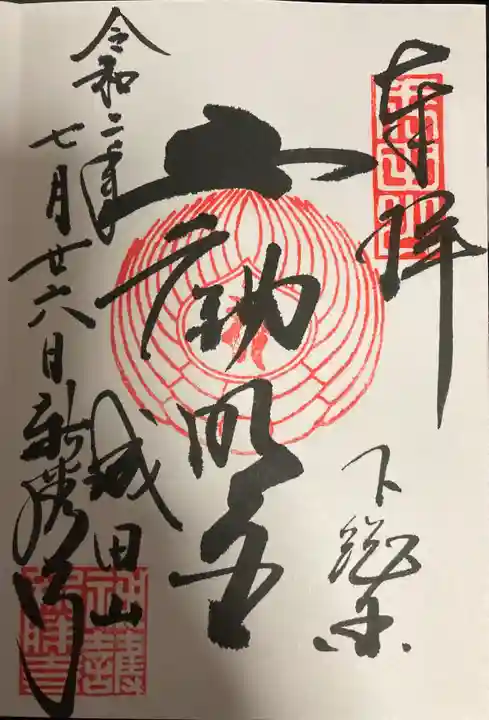 奉拝
下総國
不動明王
成田山
令和二年
七月廿六日新勝寺